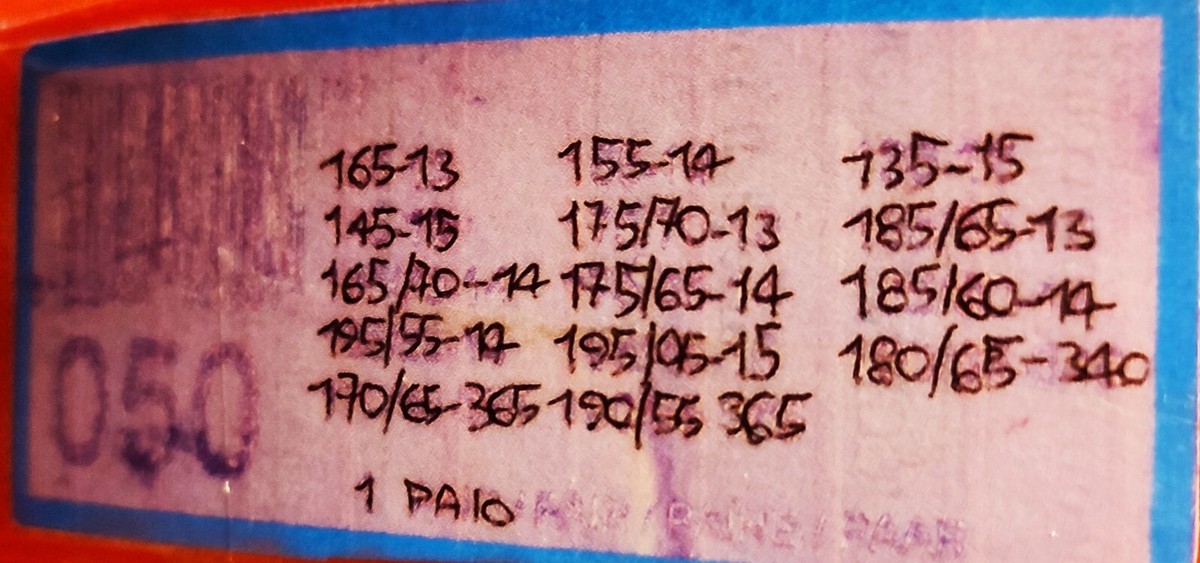 165-13 155-14 135-15
145-15 175/70-13 185/65-13
165/70-14 175/65-14 185/60-14
195/55-14 195/05-15 180/65-340
170/65-365 190/55 365
050
1 PAIO